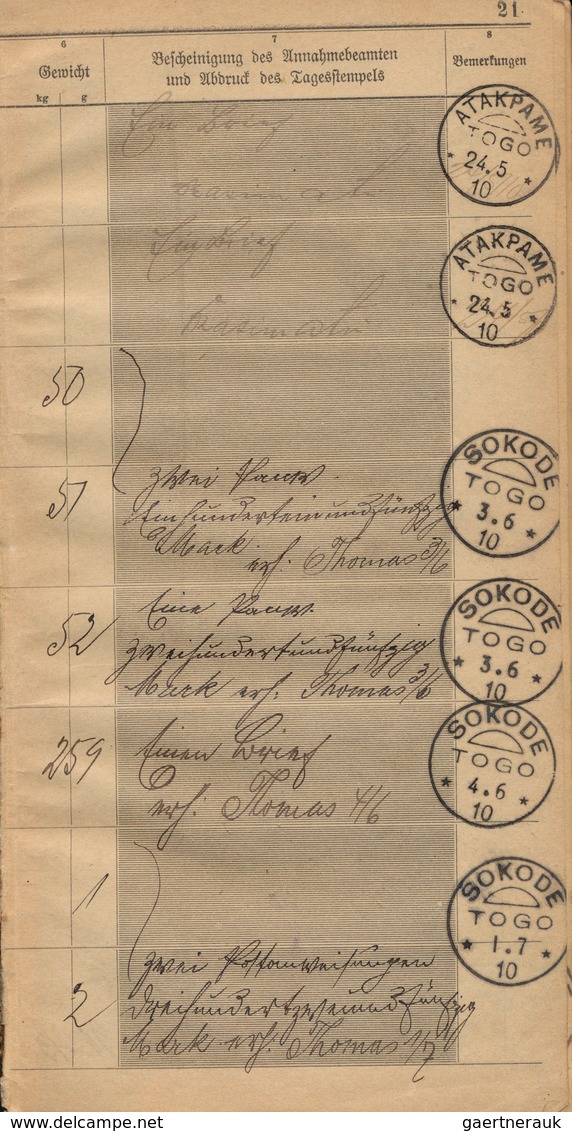 21
6
7
8
Gewicht
Bescheinigung des Annahmebeamten
und Abdruck des Tagesstempels
Bemerkungen
kg
g
Ein Brief
ATAKPAME
TOGO
24.5
10
Ein Brief
ATAKPAME
TOGO
24.5
10
50
51
zwei Panw.
Einhunderteinundfünfzig
Mark erh. Thomas 3/6
SOKODE
TOGO
3.6
10
52
Eine Panw.
zweihundertundfünfzig
Mark erh. Thomas 3/6
SOKODE
TOGO
3.6
10
259
Einen Brief
erh. Thomas 4/6
SOKODE
TOGO
4.6
10
1
SOKODE
TOGO
1.7
10
2
zwei Postanweisungen
Dreihundertzweiundfünfzig
Mark erh. Thomas 1/7
www.delcampe.net
gaertnerauk